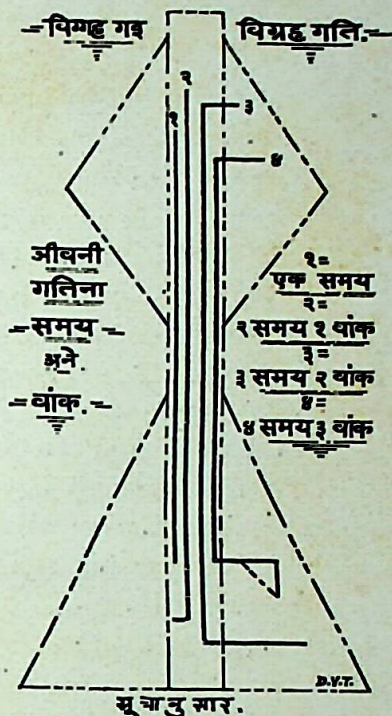 विग्गह गइ
विग्रह गति.
१
२
३
४
जीवनी
गतिना
समय
अने
वांक.
१=
एक समय
२=
२ समय १ वांक
३=
३ समय २ वांक
४=
४ समय ३ वांक
D.V.T.
सूत्रानुसार.